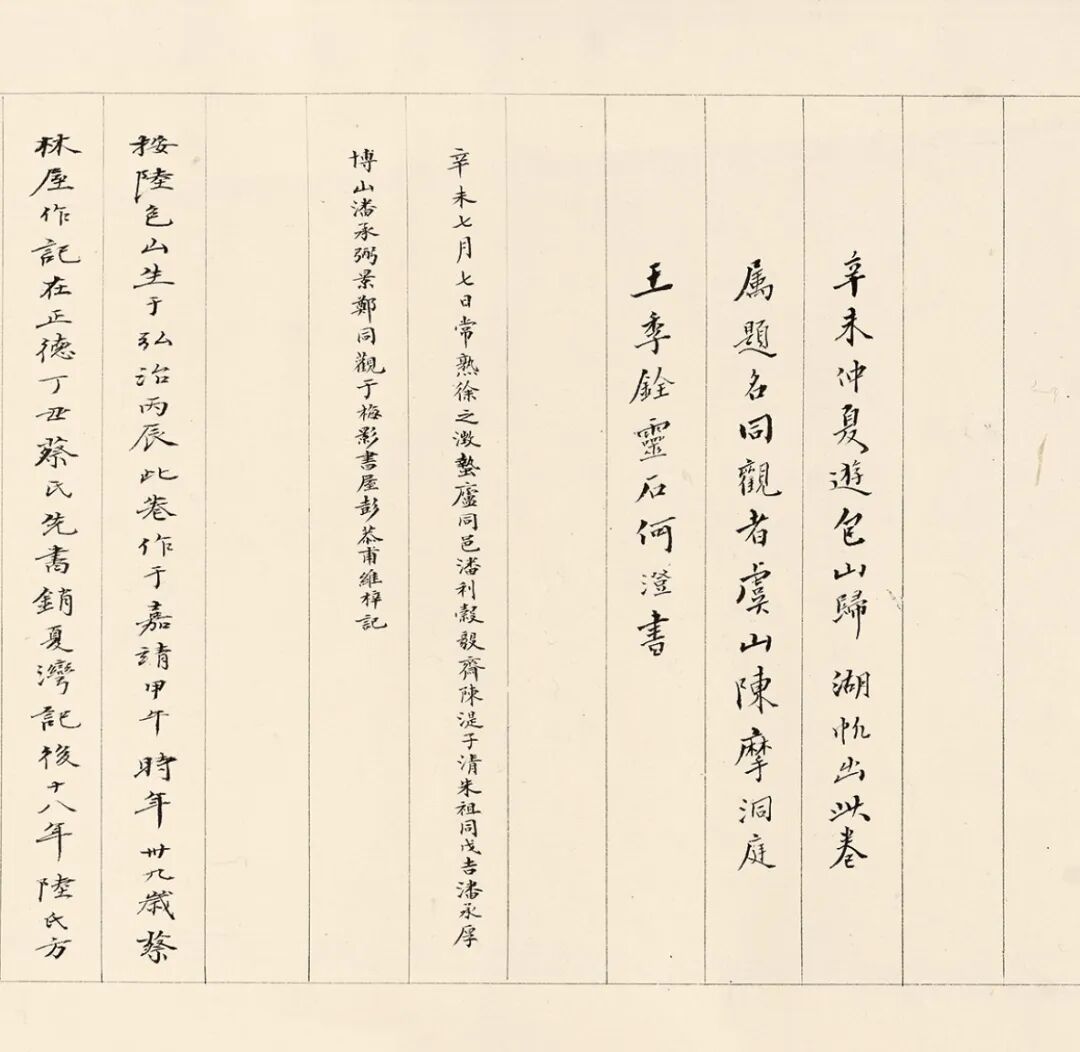 辛未仲夏遊包山歸 湖帆出此卷
属題名同觀者虞山陳摩洞庭
王季銓靈石何澄書
辛未七月七日常熟徐之澂蟄廬同邑潘利穀毅齋陳湜子清朱祖同戊吉潘承厚
博山潘承弼景鄭同觀于梅影書屋彭恭甫維梓記
按陸包山生于弘治丙辰此卷作于嘉靖甲午時年卅九歲蔡
林屋作記在正德丁丑蔡氏先書銷夏灣記後十八年陸氏方